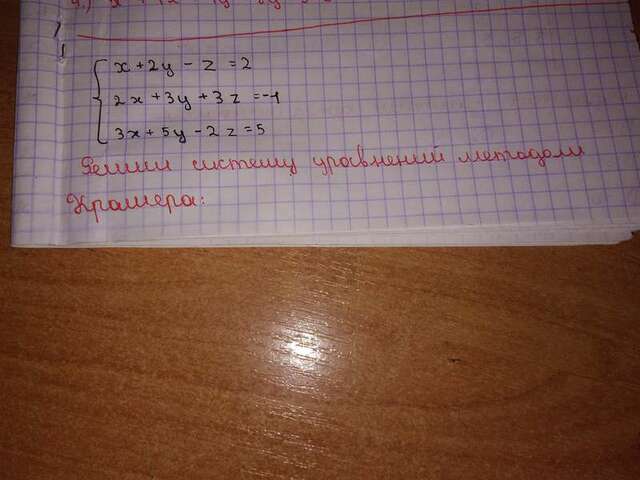 x + 2y - z = 2
2x + 3y + 3z = -1
3x + 5y - 2z = 5
Реши систему уравнений методом
Крамера: